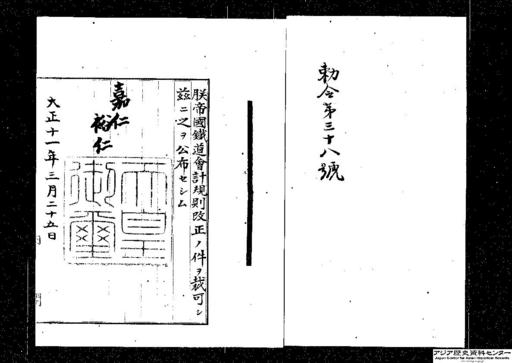 勅令第三十八號
朕帝國鐵道會計規則改正ノ件ヲ裁可シ
茲ニ之ヲ公布セシム
嘉仁
裕仁
天皇
御璽
大正十一年三月二十五日
アジア歴史資料センター
Japan Center for Asian Historical Records